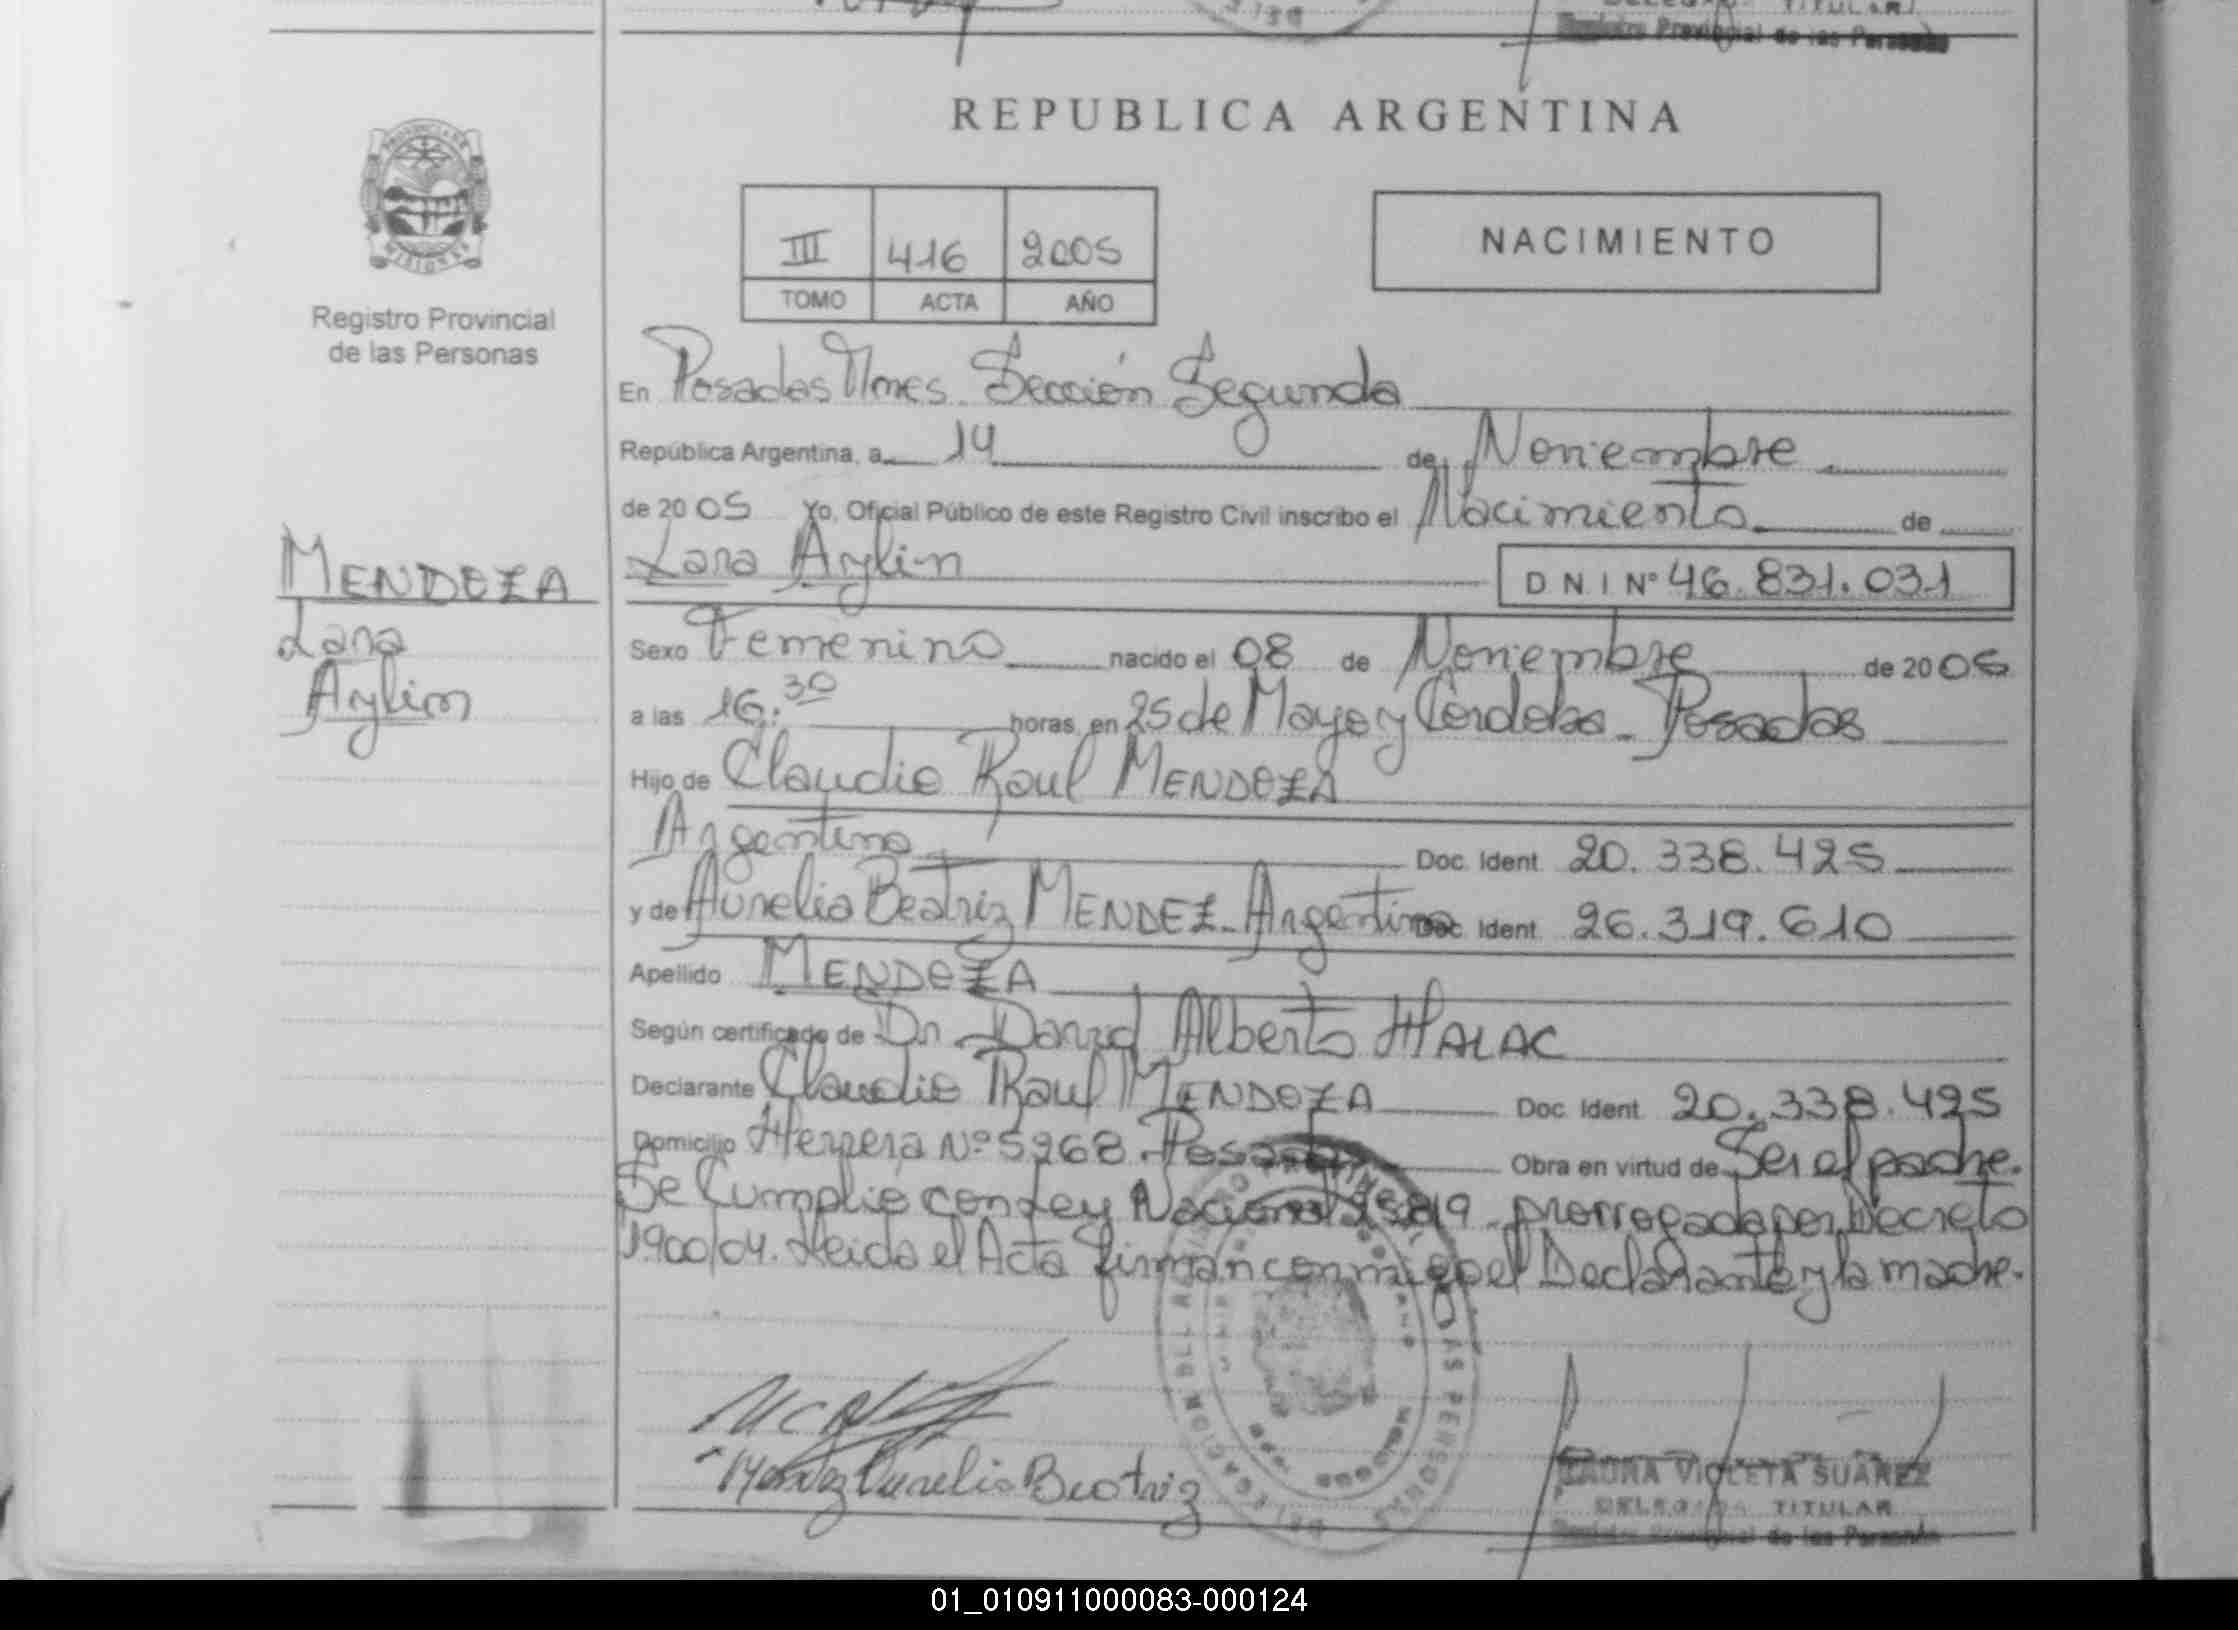 DELEGADA TITULAR
Registro Provincial de las Personas
REPUBLICA ARGENTINA
PROVINCIA DE
MISIONES
Registro Provincial
de las Personas
III 416 2005
TOMO ACTA AÑO
NACIMIENTO
En Posadas Mnes. Sección Segunda
República Argentina, a 14 de Noviembre
de 2005 Yo, Oficial Público de este Registro Civil inscribo el Nacimiento de
Lara Aylin DNI Nº 46.831.031
MENDOZA
Lara
Aylin
Sexo Femenino nacido el 08 de Noviembre de 2005
a las 16.30 horas, en 25 de Mayo y Córdoba - Posadas
Hijo de Claudio Raul MENDOZA
Argentino Doc. Ident. 20.338.425
y de Aurelia Beatriz MENDEZ - Argentina Doc. Ident. 26.319.610
Apellido MENDOZA
Según certificado de Dr. David Alberto HALAC
Declarante Claudio Raul MENDOZA Doc. Ident. 20.338.425
Domicilio Herrera Nº 5268 - Posadas Obra en virtud de Ser el padre.
Se Cumplió con Ley Nacional 25819 prorrogada por Decreto
1900/04. Leida el Acta firman conmigo el Declarante y la madre.
Mendez Aurelia Beatriz
DELEGACION DEL REGISTRO PROVINCIAL DE LAS PERSONAS
LAURA VIOLETA SUAREZ
DELEGADA TITULAR
Registro Provincial de las Personas
01_010911000083-000124